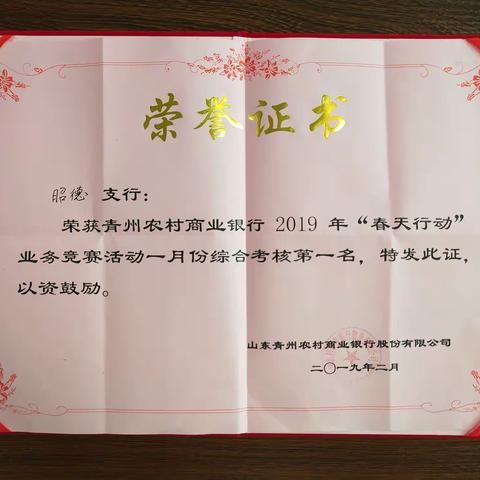 荣誉证书
昭德 支行：
荣获青州农村商业银行 2019 年“春天行动”
业务竞赛活动一月份综合考核第一名，特发此证，
以资鼓励。
山东青州农村商业银行股份有限公司
二〇一九年二月